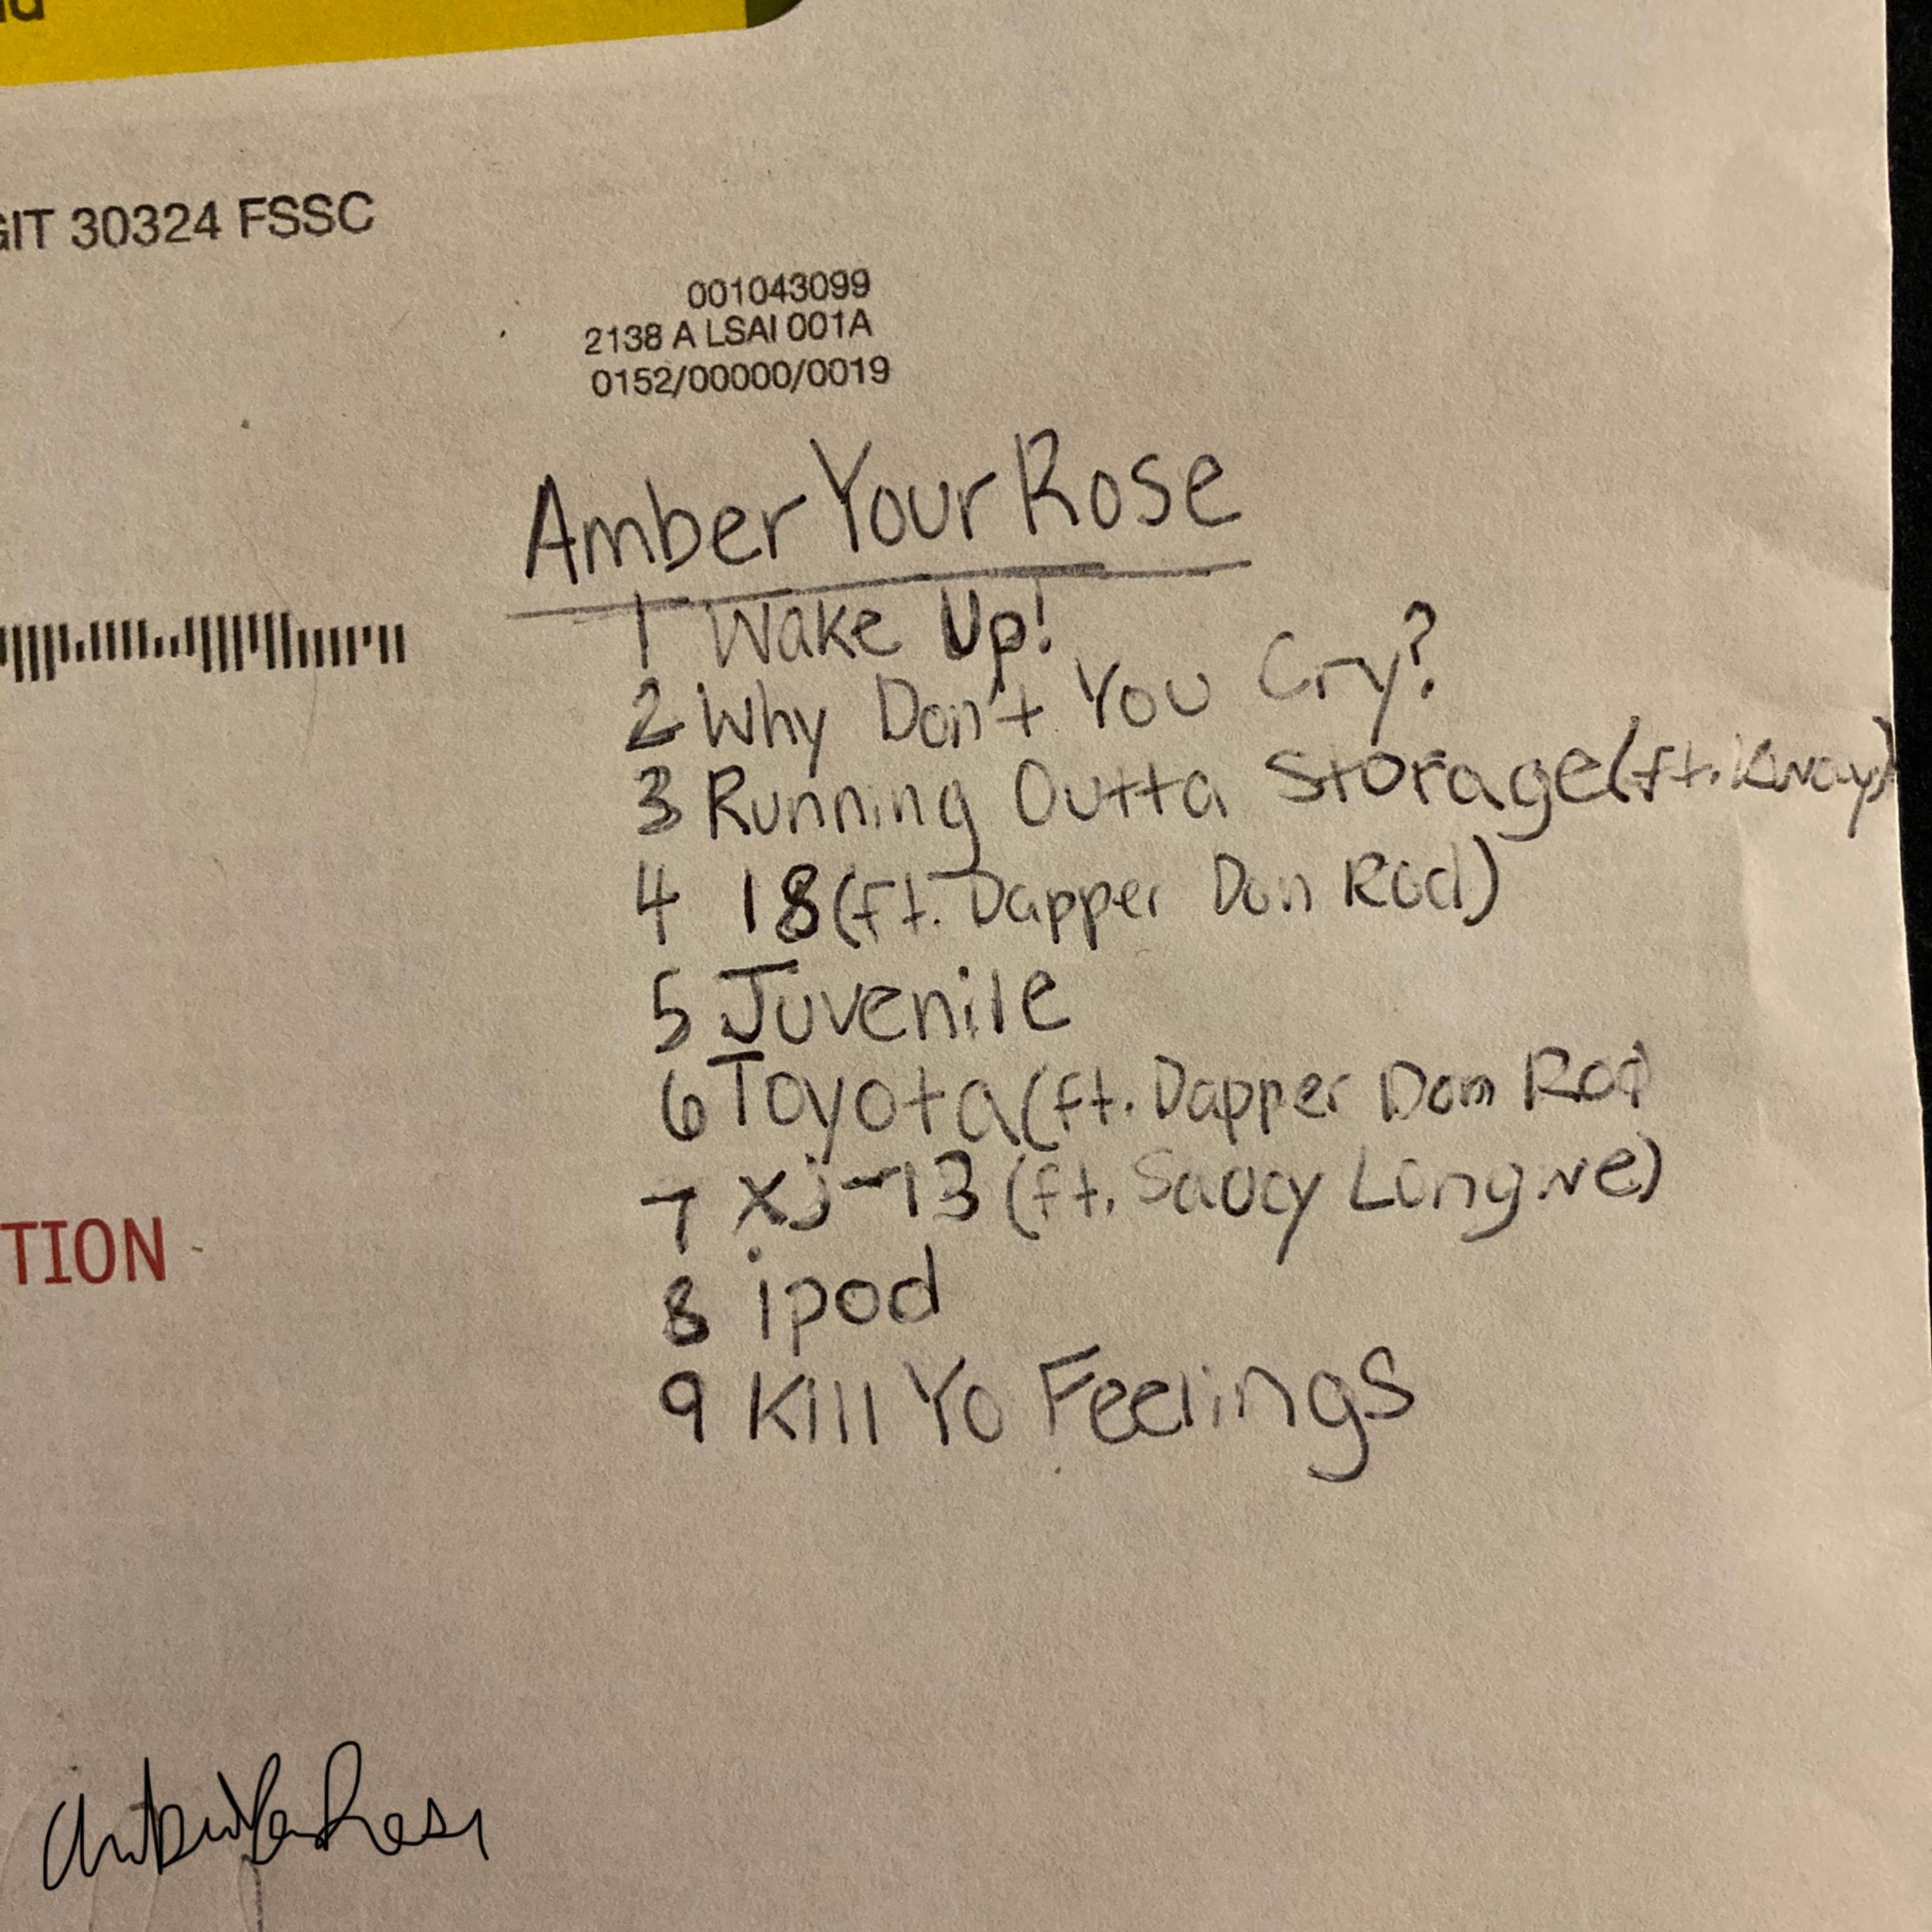 GIT 30324 FSSC
001043099
2138 A LSAI 001A
0152/00000/0019
Amber Your Rose
1 Wake Up!
2 Why Don't You Cry?
3 Running Outta Storage (ft. Kway)
4 18 (ft. Dapper Don Rod)
5 Juvenile
6 Toyota (ft. Dapper Don Rod
7 xj-13 (ft. Saucy Longwe)
TION
8 ipod
9 Kill Yo Feelings
AmberYourRose